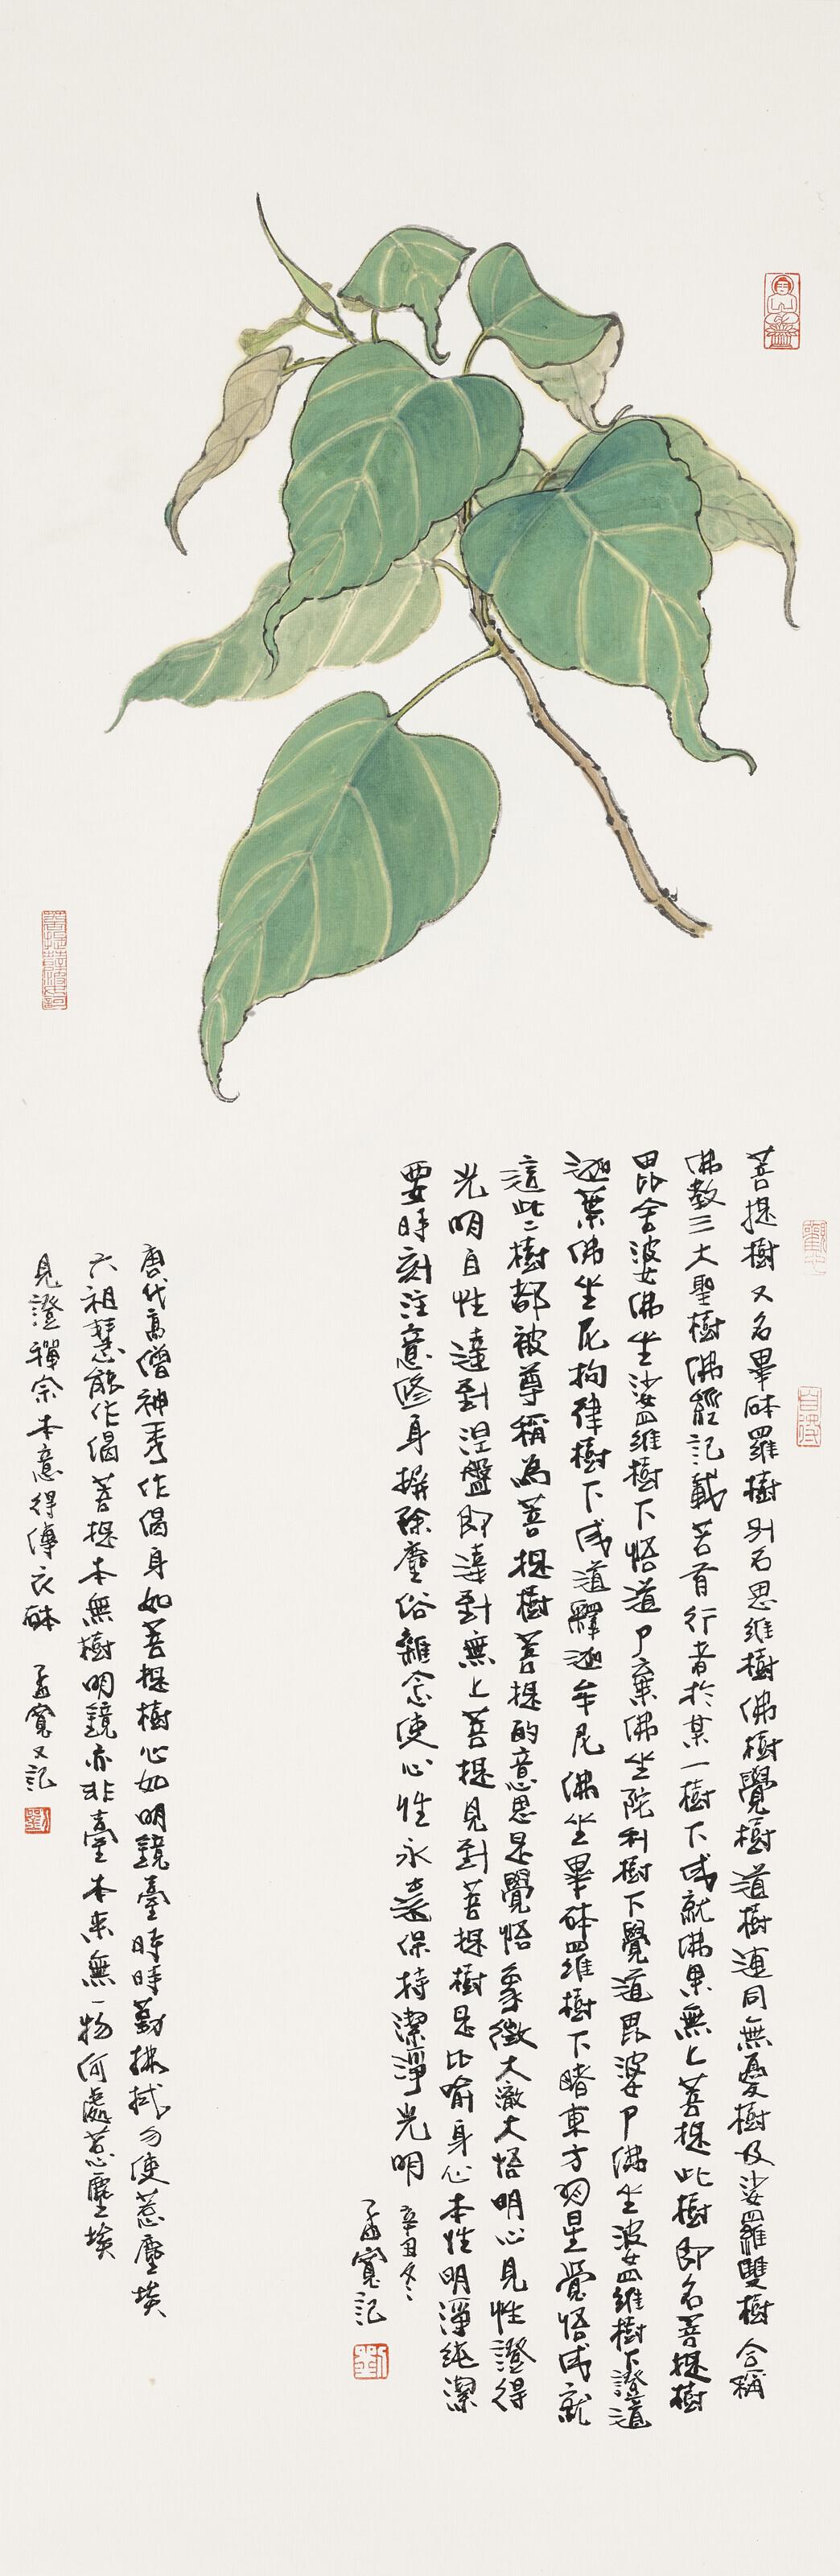 菩提樹又名畢砵羅樹別名思維樹佛樹覺樹道樹連同無憂樹及娑羅雙樹合稱
佛教三大聖樹佛經記載若有行者於某一樹下成就佛果無上菩提此樹即名菩提樹
毘舍波女佛坐娑羅維樹下悟道尸棄佛坐陀利樹下覺道毘婆尸佛坐波女羅維樹下證道
迦葉佛坐尼拘律樹下成道釋迦牟尼佛坐畢砵羅維樹下睹東方明星覺悟成就
這些樹都被尊稱為菩提樹菩提的意思是覺悟象徵大澈大悟明心見性證得
光明自性達到涅盤即達到無上菩提見到菩提樹是比喻身心本性明淨純潔
要時刻注意修身摒除塵俗雜念使心性永遠保持潔淨光明
辛丑冬
孟寬記
唐代高僧神秀作偈身如菩提樹心如明鏡臺時時勤拂拭勿使惹塵埃
六祖慧能作偈菩提本無樹明鏡亦非臺本來無一物何處惹塵埃
見證禪宗本意得傳衣砵 孟寬又記